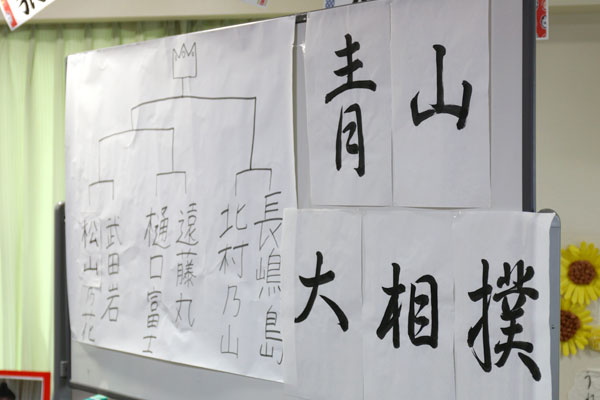 青山
大相撲
長嶋島
北村乃山
遠藤丸
樋口富士
武田岩
松山乃花